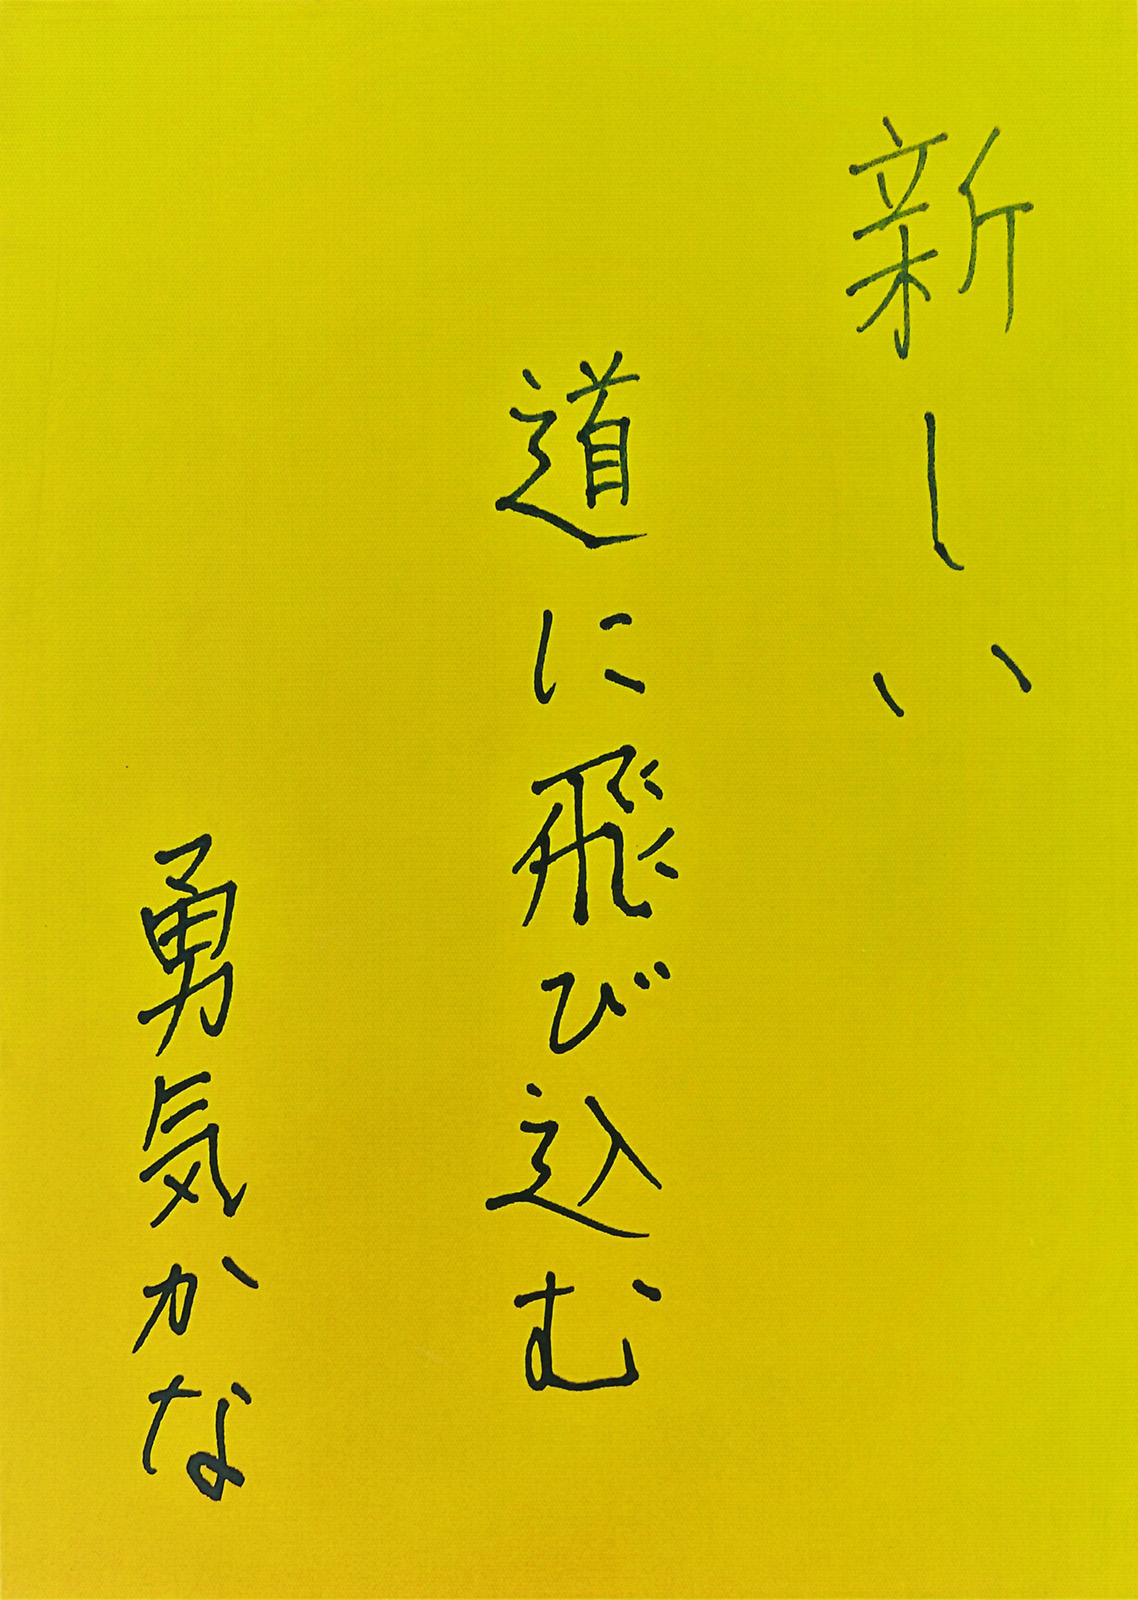 新しい
道に飛び込む
勇気かな